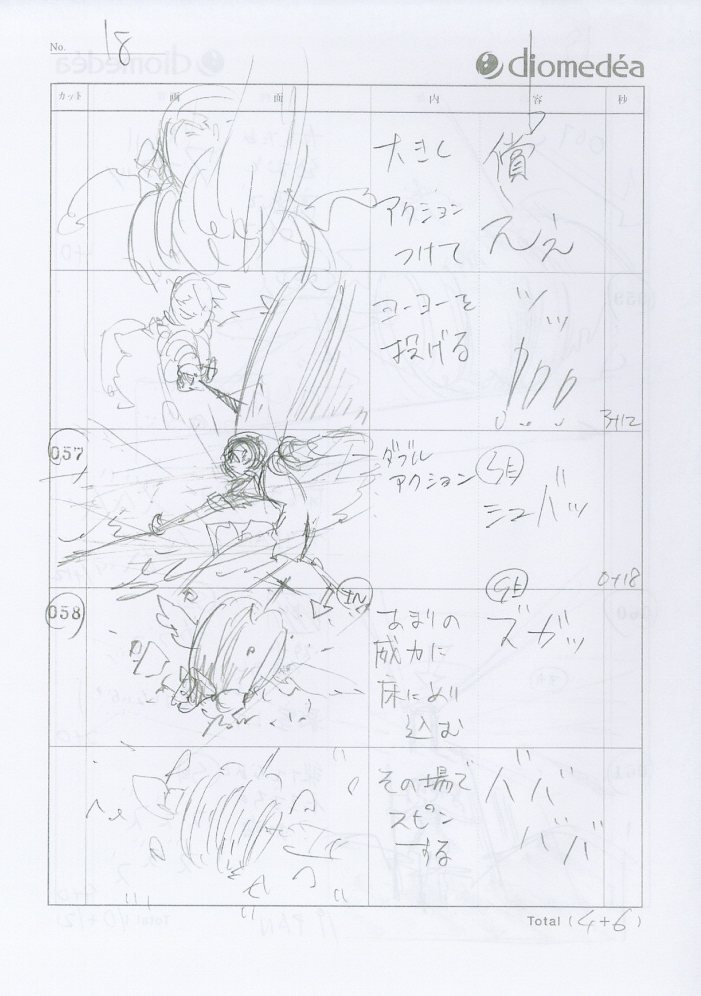 No. 18
diomedéa
カット 画 面 内 容 秒
大きく
アクション
つけて
償
えぇ
ヨーヨーを
投げる
3+12
057
ダブル
アクション
SE
シュバッ
0+18
058
IN
SE
ズガッ
あまりの
威力に
床にめり
込む
その場で
スピン
する
ババ
ババ
Total (4+6)